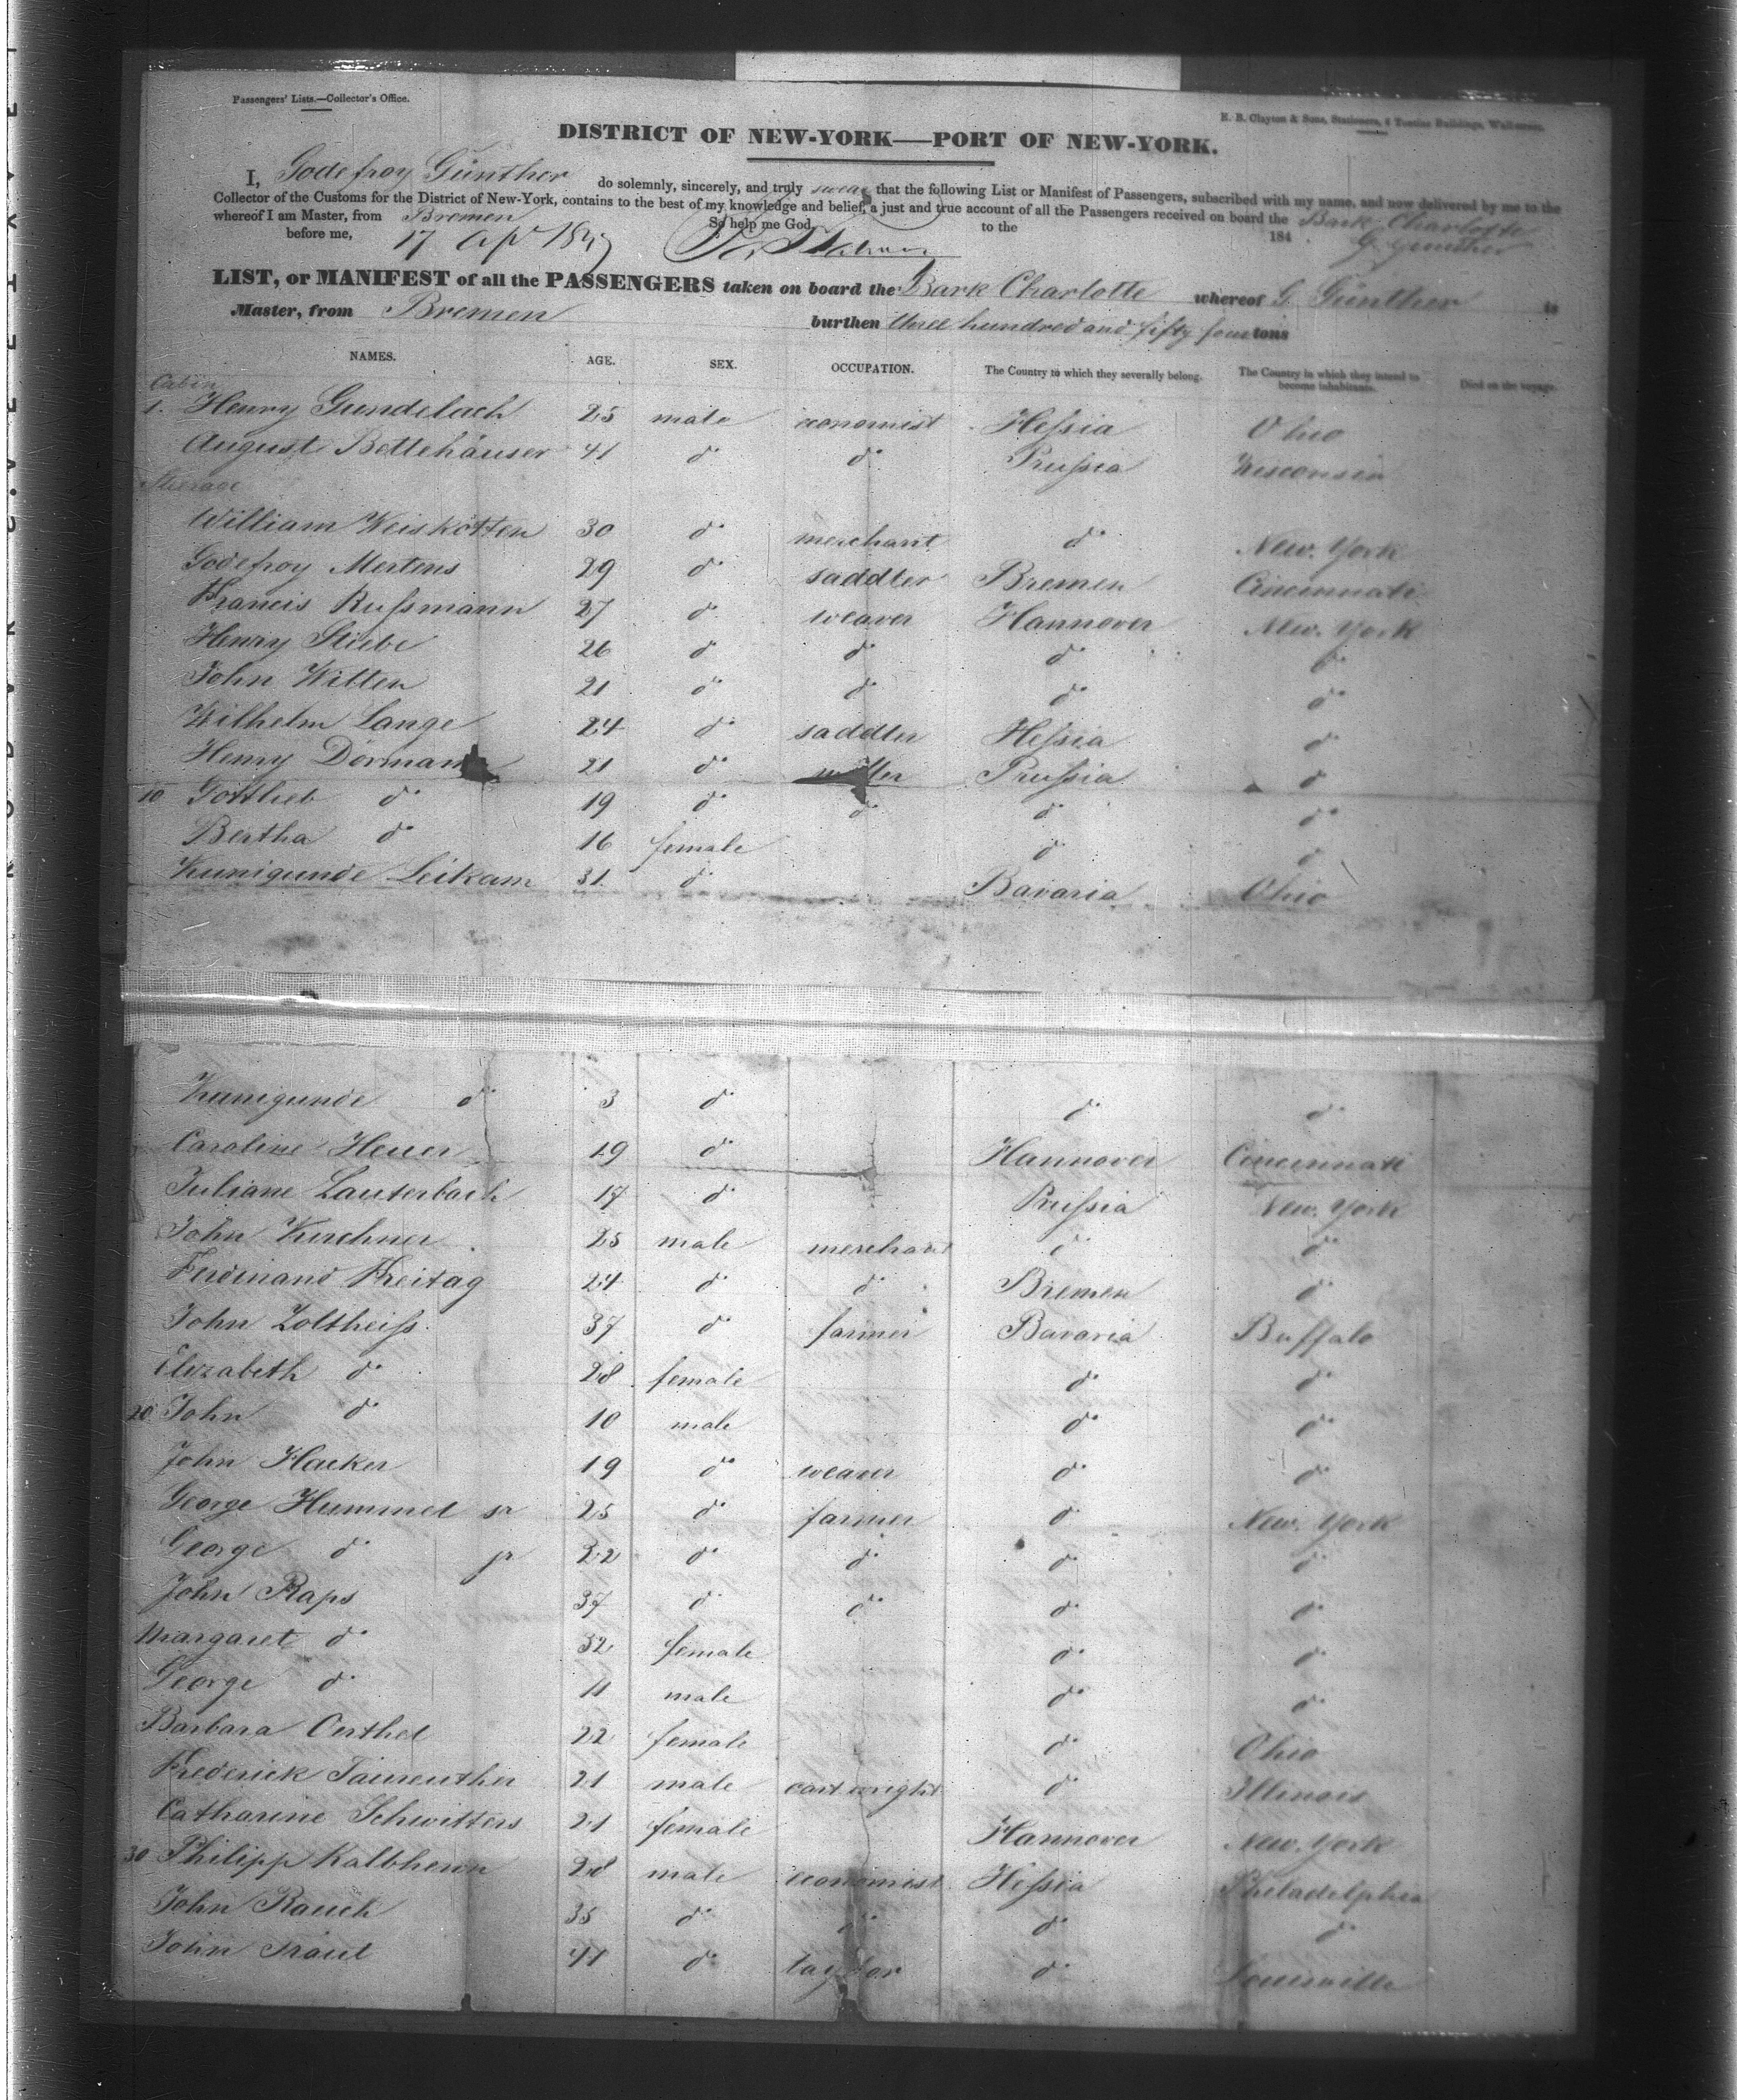 Passengers' Lists.—Collector's Office.
E. B. Clayton & Sons, Stationers, 4 Tontine Buildings, Wall-street.
DISTRICT OF NEW-YORK—PORT OF NEW-YORK.
I, Godefroy Günther do solemnly, sincerely, and truly swear that the following List or Manifest of Passengers, subscribed with my name, and now delivered by me to the
Collector of the Customs for the District of New-York, contains to the best of my knowledge and belief, a just and true account of all the Passengers received on board the Bark Charlotte
whereof I am Master, from Bremen So help me God. to the 184
before me, 17 Apr 1847 G. Günther
LIST, or MANIFEST of all the PASSENGERS taken on board the Bark Charlotte whereof G. Günther is
Master, from Bremen burthen three hundred and fifty four tons
NAMES. AGE. SEX. OCCUPATION. The Country to which they severally belong. The Country in which they intend to become inhabitants. Died on the voyage.
Cabin
1. Henry Gundelach 25 male economist Heſsia Ohio
August Bettehäuser 41 do do Pruſsia Wisconsin
Steerage
William Weiskötten 30 do merchant do New. York
Godefroy Mertens 29 do saddler Bremen Cincinnati
Francis Ruſsmann 27 do weaver Hannover New. York
Henry Stiebe 26 do do do do
John Witten 21 do do do do
Wilhelm Lange 24 do saddler Heſsia do
Henry Dormann 21 do miller Pruſsia do
10 Gottlieb do 19 do do do do
Bertha do 16 female do do
Kunigunde Leikam 31 do Bavaria Ohio
Kunigunde do 3 do do do
Caroline Heuer 19 do Hannover Cincinnati
Juliane Lauterbach 17 do Pruſsia New. York
John Kirchner 25 male merchant do do
Ferdinand Freitag 24 do do Bremen do
John Zoltheiſs 37 do farmer Bavaria Buffalo
Elizabeth do 28 female do do
20 John do 10 male do do
John Hacker 19 do weaver do do
George Hummel sr 25 do farmer do New. York
George do jr 22 do do do do
John Raps 37 do do do do
Margaret do 32 female do do
George do 11 male do do
Barbara Oerthel 22 female do Ohio
Frederick 21 male cartwright do Illinois
Catharine Schwitters 21 female Hannover New. York
30 Philipp Kalbhenn 28 male economist Heſsia Philadelphia
John Rauch 35 do do do do
John Traut 41 do taylor do Louisville